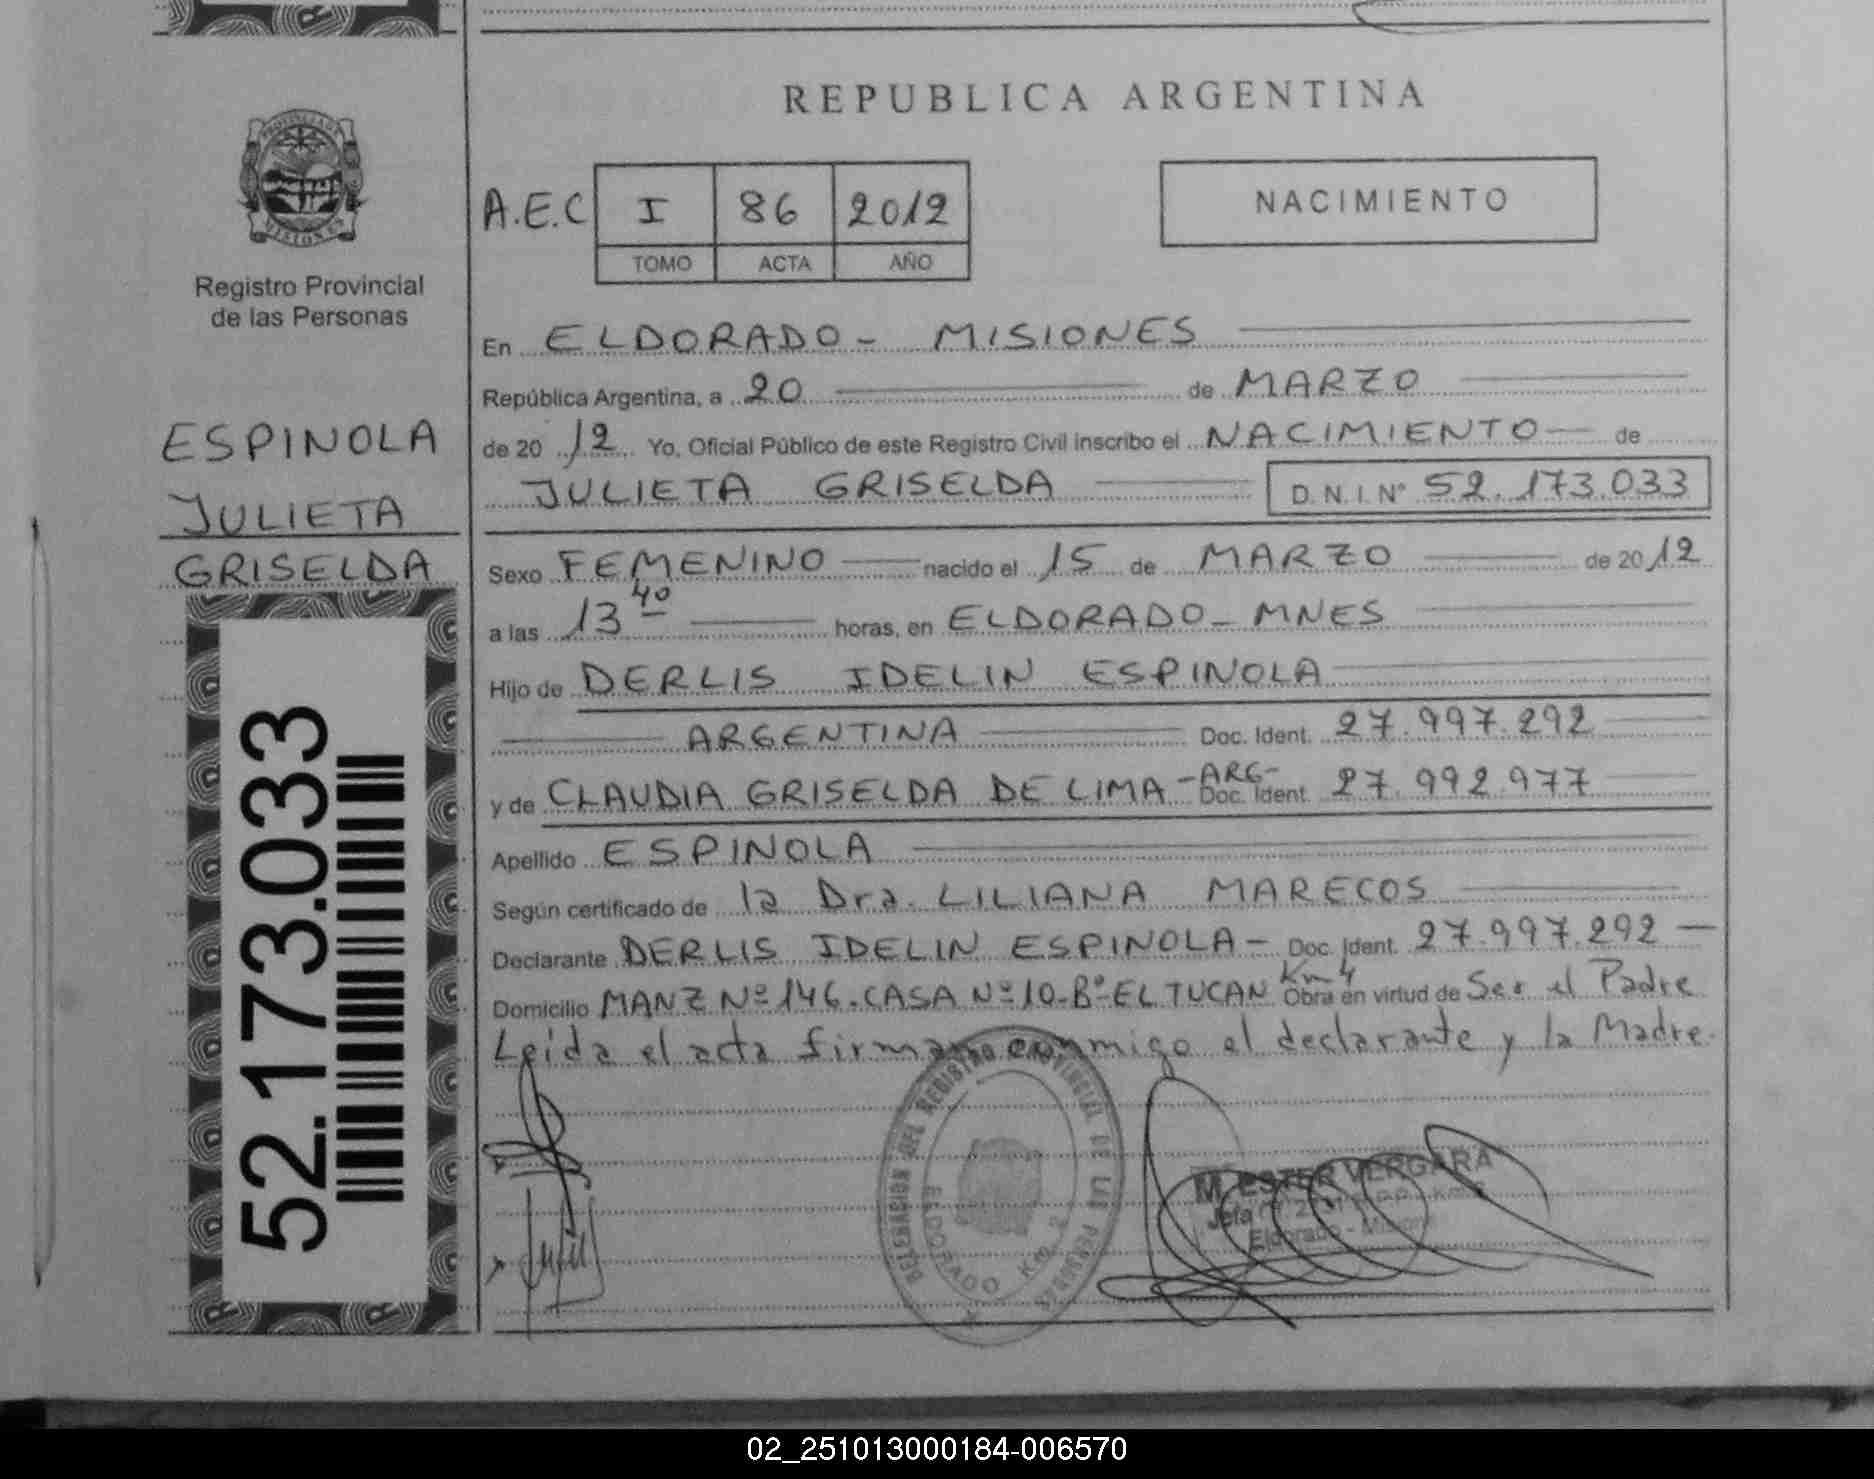 REPUBLICA ARGENTINA
PROVINCIA DE MISIONES
Registro Provincial
de las Personas
A.E.C I 86 2012
TOMO ACTA AÑO
NACIMIENTO
ESPINOLA
JULIETA
GRISELDA
52.173.033
En ELDORADO - MISIONES
República Argentina, a 20 de MARZO
de 2012 Yo, Oficial Público de este Registro Civil inscribo el NACIMIENTO de
JULIETA GRISELDA D.N.I. N° 52.173.033
Sexo FEMENINO nacido el 15 de MARZO de 2012
a las 13 40 horas, en ELDORADO - MNES
Hijo de DERLIS IDELIN ESPINOLA
ARGENTINA Doc. Ident. 27.997.292
y de CLAUDIA GRISELDA DE LIMA -ARG- Doc. Ident. 27.992.977
Apellido ESPINOLA
Según certificado de la Dra. LILIANA MARECOS
Declarante DERLIS IDELIN ESPINOLA - Doc. Ident. 27.997.292
Domicilio MANZ Nº 146. CASA Nº 10-Bº-EL TUCAN Km 4 Obra en virtud de Ser el Padre
Leída el acta firman conmigo el declarante y la Madre.
DELEGACION DEL REGISTRO PROVINCIAL DE LAS PERSONAS
ELDORADO Km. 2
M. ESTER VERGARA
Jefa
Eldorado - Misiones
02_251013000184-006570